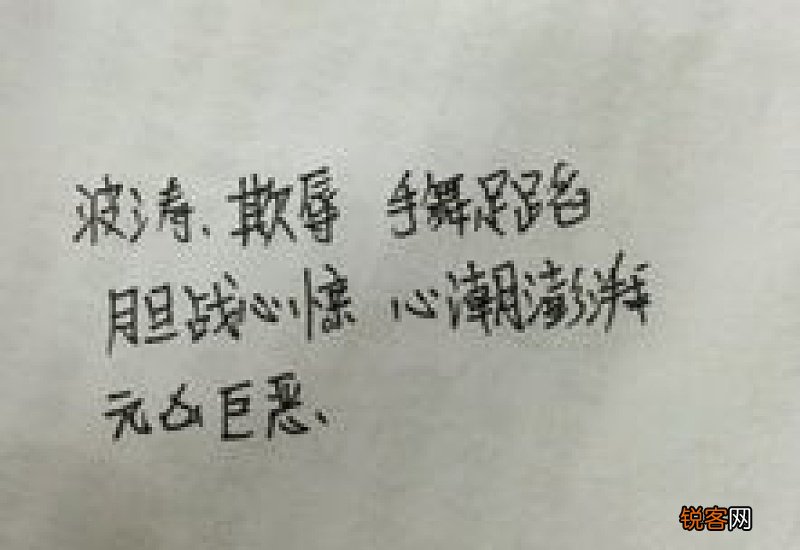 波涛、欺辱 手舞足蹈
胆战心惊 心潮澎湃
元凶巨恶、
锐客网